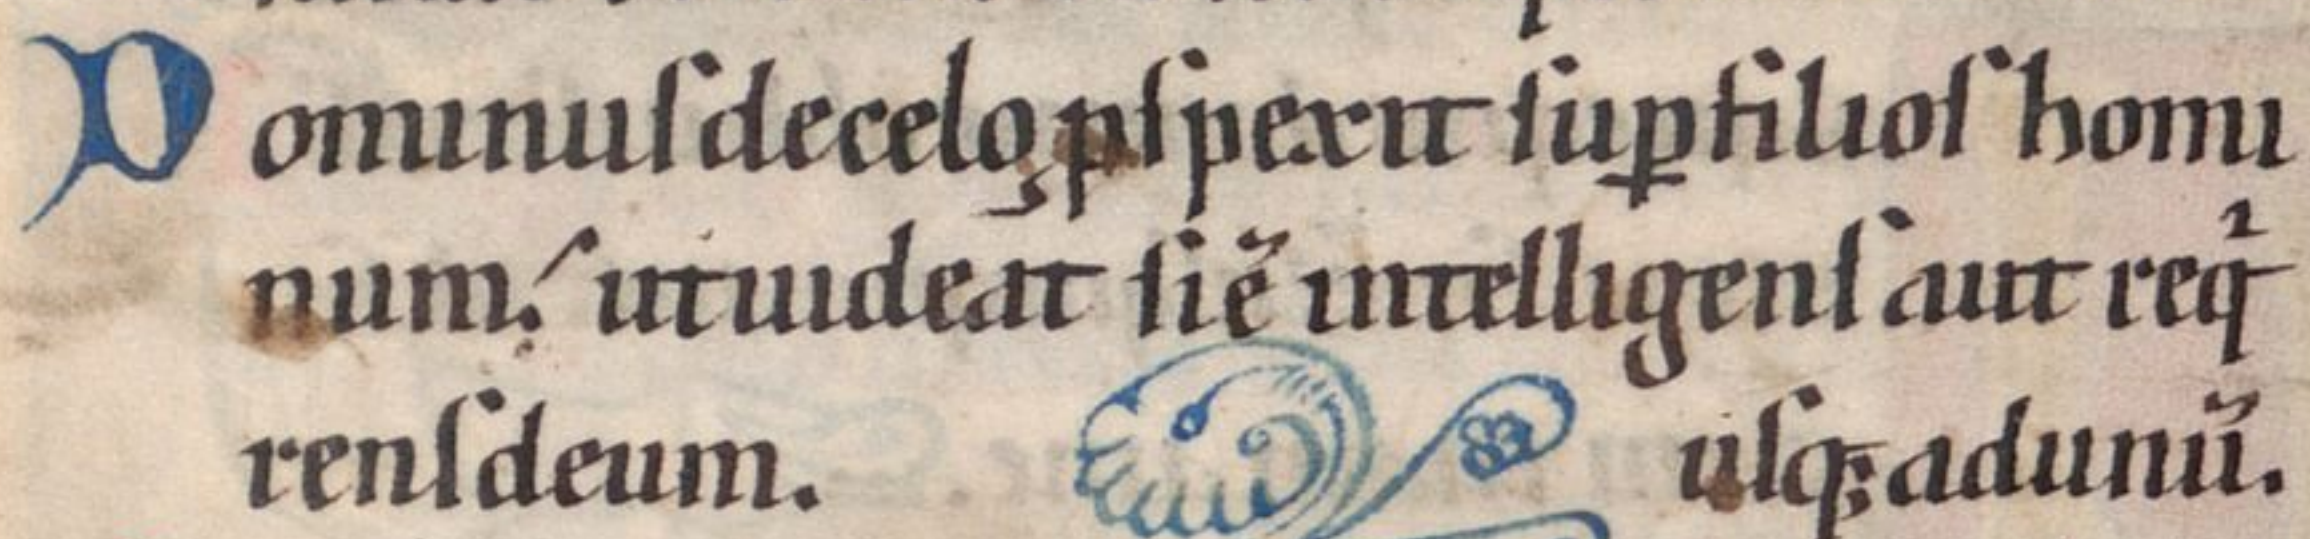 Dominuſ de celo ꝓſpexit ſuꝑ filioſ homi
num: ut uideat ſi ẽ intelligenſ aut reqͥ
renſ deum. uſq; ad unũ.